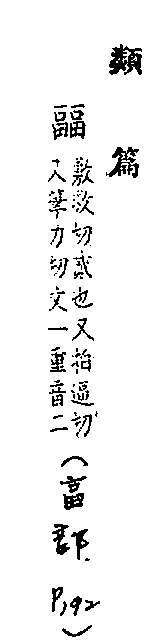 類篇
敷救切貳也又拍逼切
又筆力切文一重音二
(畗部 P192)